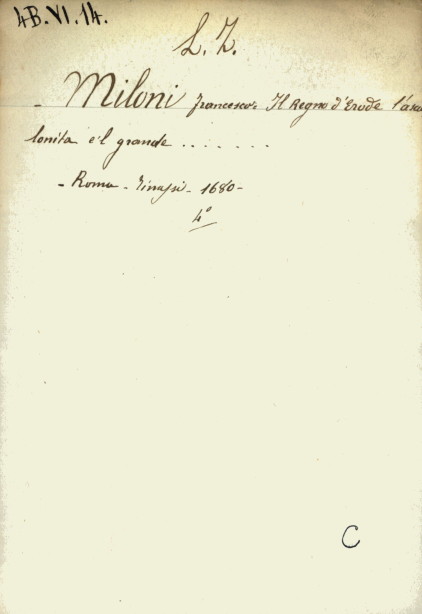 4B.VI.14.
L. Z.
- Miloni Francesco. Il Regno d'Erode l'asca
lonita e'l grande . . . . . . .
- Roma - Tinassi - 1680 -
4°
C